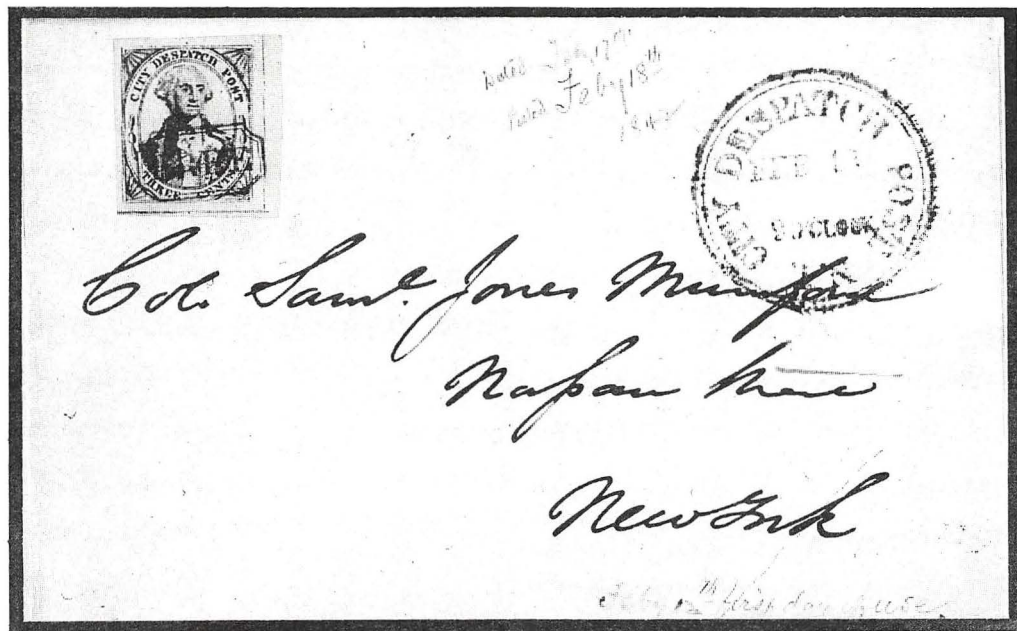 CITY DESPATCH POST
THREE CENTS
Dated Feby 17th
Posted Feby 18th
CITY DESPATCH POST
FEB
9 O'CLOCK
Col. Saml. Jones Mumford
Nassau
New York
Feby first day of use